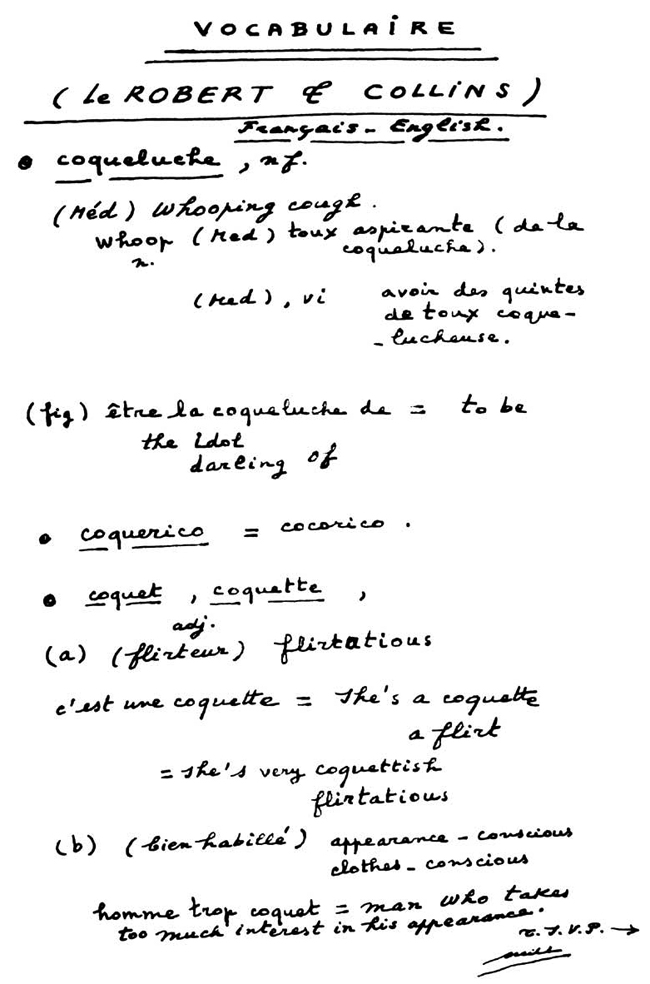 VOCABULAIRE
(Le ROBERT & COLLINS)
Français - English.
• coqueluche, nf.
(Méd) Whooping cough.
whoop (Med) toux aspirante (de la
n. coqueluche).
(Med), vi avoir des quintes
de toux coque-
-lucheuse.
(fig) être la coqueluche de = to be
the idol
darling of
• coquerico = cocorico.
• coquet, coquette,
adj.
(a) (flirteur) flirtatious
c'est une coquette = She's a coquette
a flirt
= she's very coquettish
flirtatious
(b) (bien habillé) appearance - conscious
clothes - conscious
homme trop coquet = man who takes
too much interest in his appearance.
T.S.V.P. →